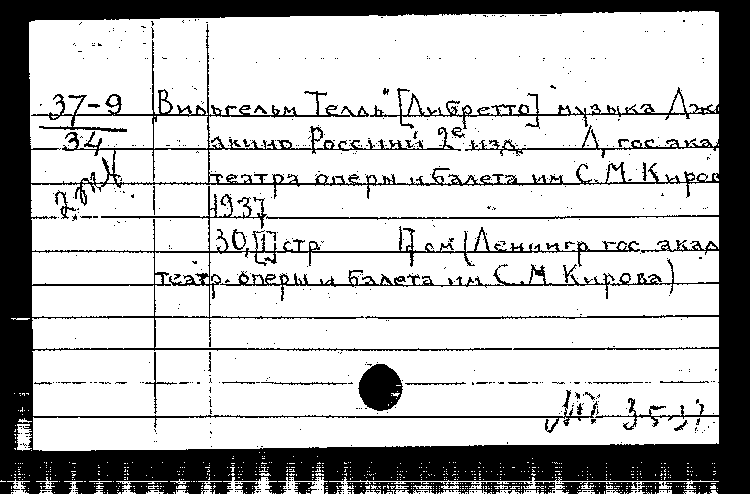 37-9
34
„Вильгельм Телль" [Либретто] музыка Джо
акино Россини 2е изд. Л, гос акад
театра оперы и балета им С. М. Киров
1937
30, [1] стр 17 см (Ленингр гос. акад
театр. оперы и балета им С. М. Кирова)
3-5-37